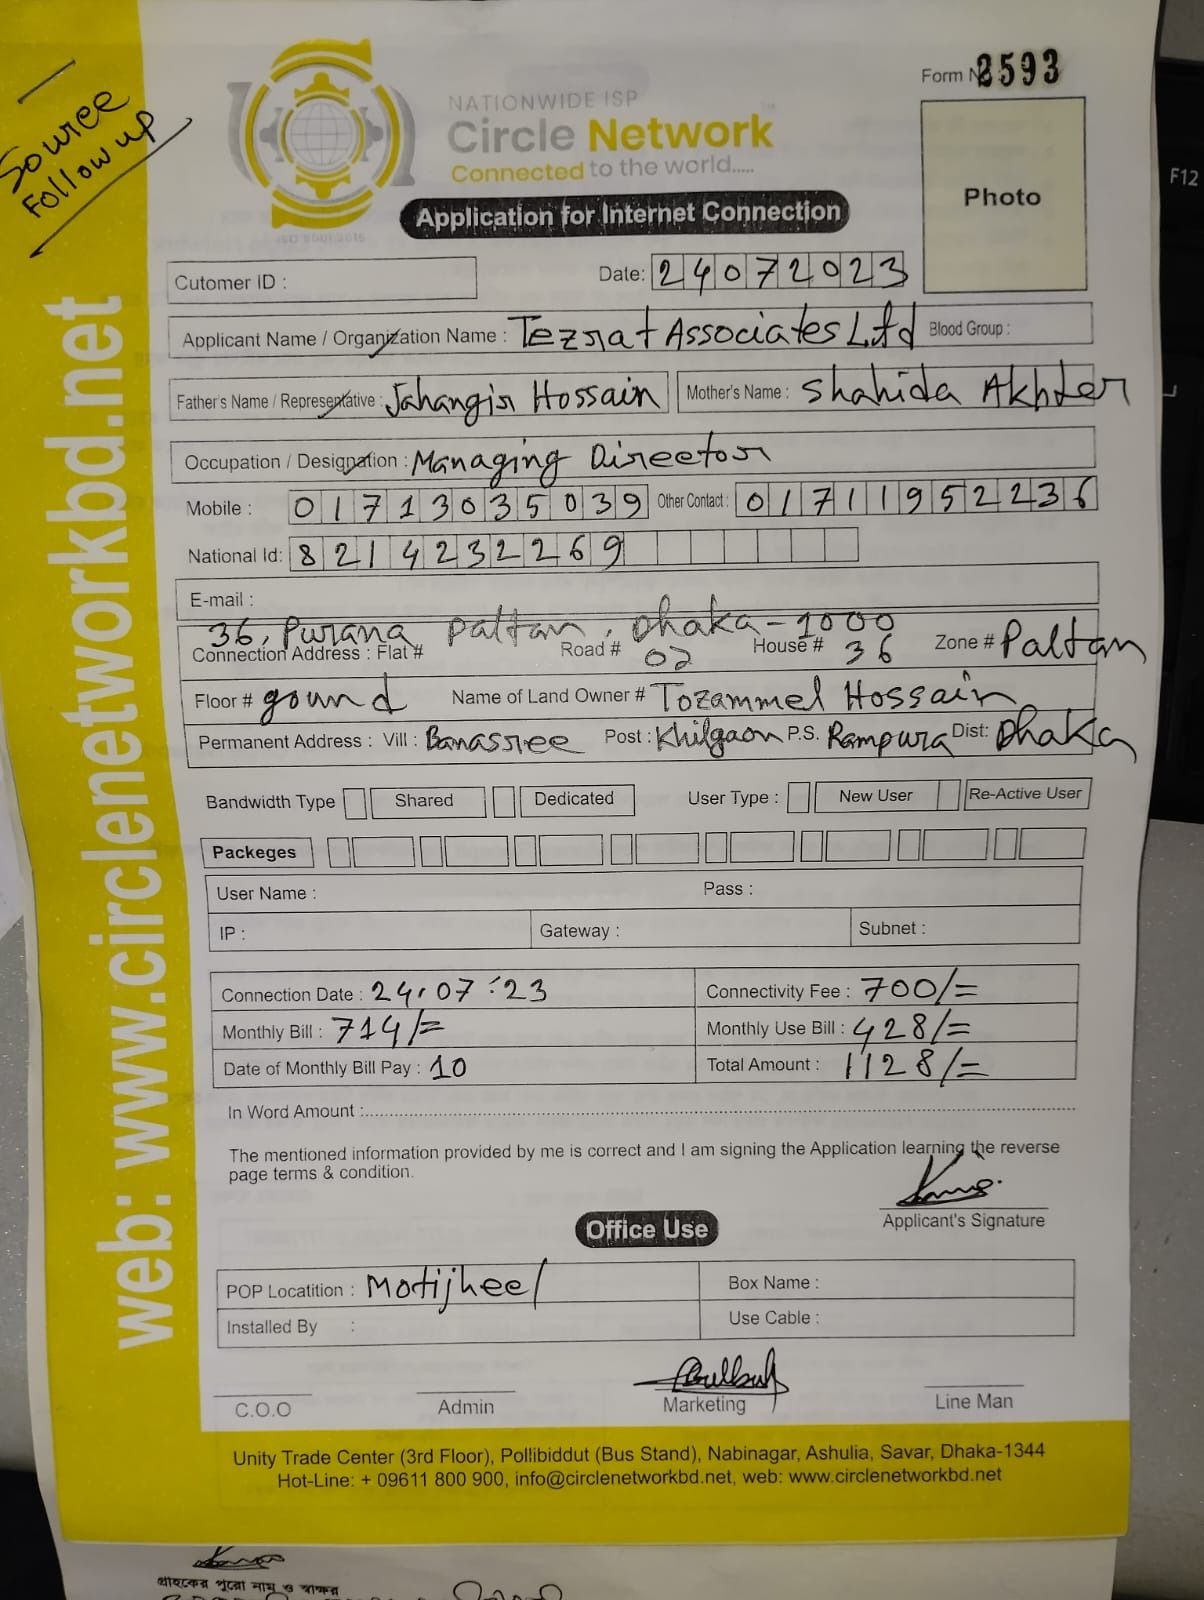 Source
Follow up
Form No 3593
NATIONWIDE ISP
Circle Network
Connected to the world.....
ISO 9001:2015
Photo
F12
Application for Internet Connection
Cutomer ID :
Date: 24072023
Applicant Name / Organization Name : Tezrat Associates Ltd Blood Group :
Father's Name / Representative : Jahangir Hossain Mother's Name : Shahida Akhter
Occupation / Designation : Managing Director
Mobile : 01713035039 Other Contact : 01711952236
National Id: 8214232269
E-mail :
36, Purana Paltan, Dhaka-1000
Connection Address : Flat # Road # 02 House # 36 Zone # Paltan
Floor # gound Name of Land Owner # Tozammel Hossain
Permanent Address : Vill : Banasree Post : Khilgaon P.S. Rampura Dist: Dhaka
Bandwidth Type Shared Dedicated User Type : New User Re-Active User
Packeges
User Name : Pass :
IP : Gateway : Subnet :
Connection Date : 24.07.23 Connectivity Fee : 700/=
Monthly Bill : 714/= Monthly Use Bill : 428/=
Date of Monthly Bill Pay : 10 Total Amount : 1128/=
In Word Amount :
The mentioned information provided by me is correct and I am signing the Application learning the reverse
page terms & condition.
Applicant's Signature
Office Use
POP Locatition : Motijheel Box Name :
Installed By : Use Cable :
C.O.O Admin Marketing Line Man
Unity Trade Center (3rd Floor), Pollibiddut (Bus Stand), Nabinagar, Ashulia, Savar, Dhaka-1344
Hot-Line: + 09611 800 900, info@circlenetworkbd.net, web: www.circlenetworkbd.net
web: www.circlenetworkbd.net
গ্রাহকের পুরো নাম ও স্বাক্ষর